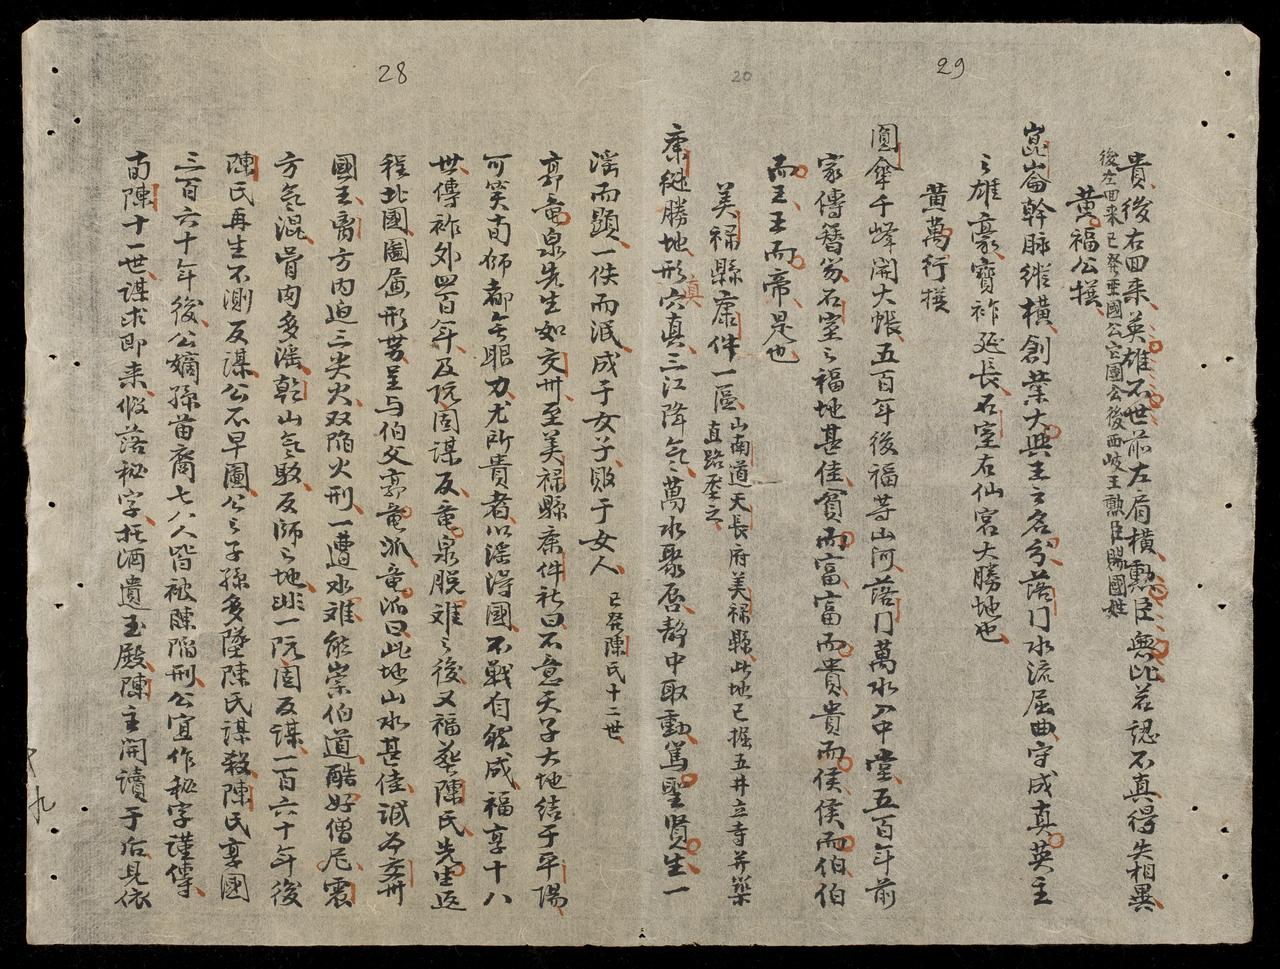 29
貴後右回来英雄不世前左肩橫勲臣無此若認不真得失相異
後左回来已發 國公 國公後西岐王勲臣賜國姓
黄福公撰
崑崙幹脉縱橫創業大興王主名分落门水流屈曲守成真英主
之雄豪寳祚延長石室右仙宮大勝地也
黄萬行撰
圓傘千峰開大帳五百年後福等山河落门萬水入中堂五百年前
家傳簪笏石室之福地甚佳貧而富富而貴貴而侯侯而伯伯
而王王而帝是也
美禄縣康件一區
山南道天長府美禄縣此地已掘五井立寺并築
直路 之
20
康継勝地形穴真三江降氣萬水聚唇静中取動篤聖賢生一
真
28
滛而顯一佚而泯成于女子敗于女人
已發陳氏十二世
郭竜泉先生如交州至美禄縣康件社曰不意天子大地结于平陽
可笑南師都無眼力尤所貴者以滛得國不戰自 成福享十八
世傳祚外四百年及阮固謀反竜泉脱难之後又福 陳氏先生返
程北國圖画形势呈与伯父郭竜派竜派曰此地山水甚佳誠 交州
國王离方内迫三尖火双陷火刑一遭水难能崇伯道酷好僧尼震
方氣混骨肉多滛乾山氣駁反師之地非一阮固反謀一百六十年後
陳氏再生不測反謀公不早圖公之子孫多墜陳氏謀殺陳氏享國
三百六十年後公嫡孫苗裔七八人皆被陳陷刑公宜作秘字謹傳
南陳十一世謀求即来假落秘字托酒遺玉殿陳主開讀于后見依